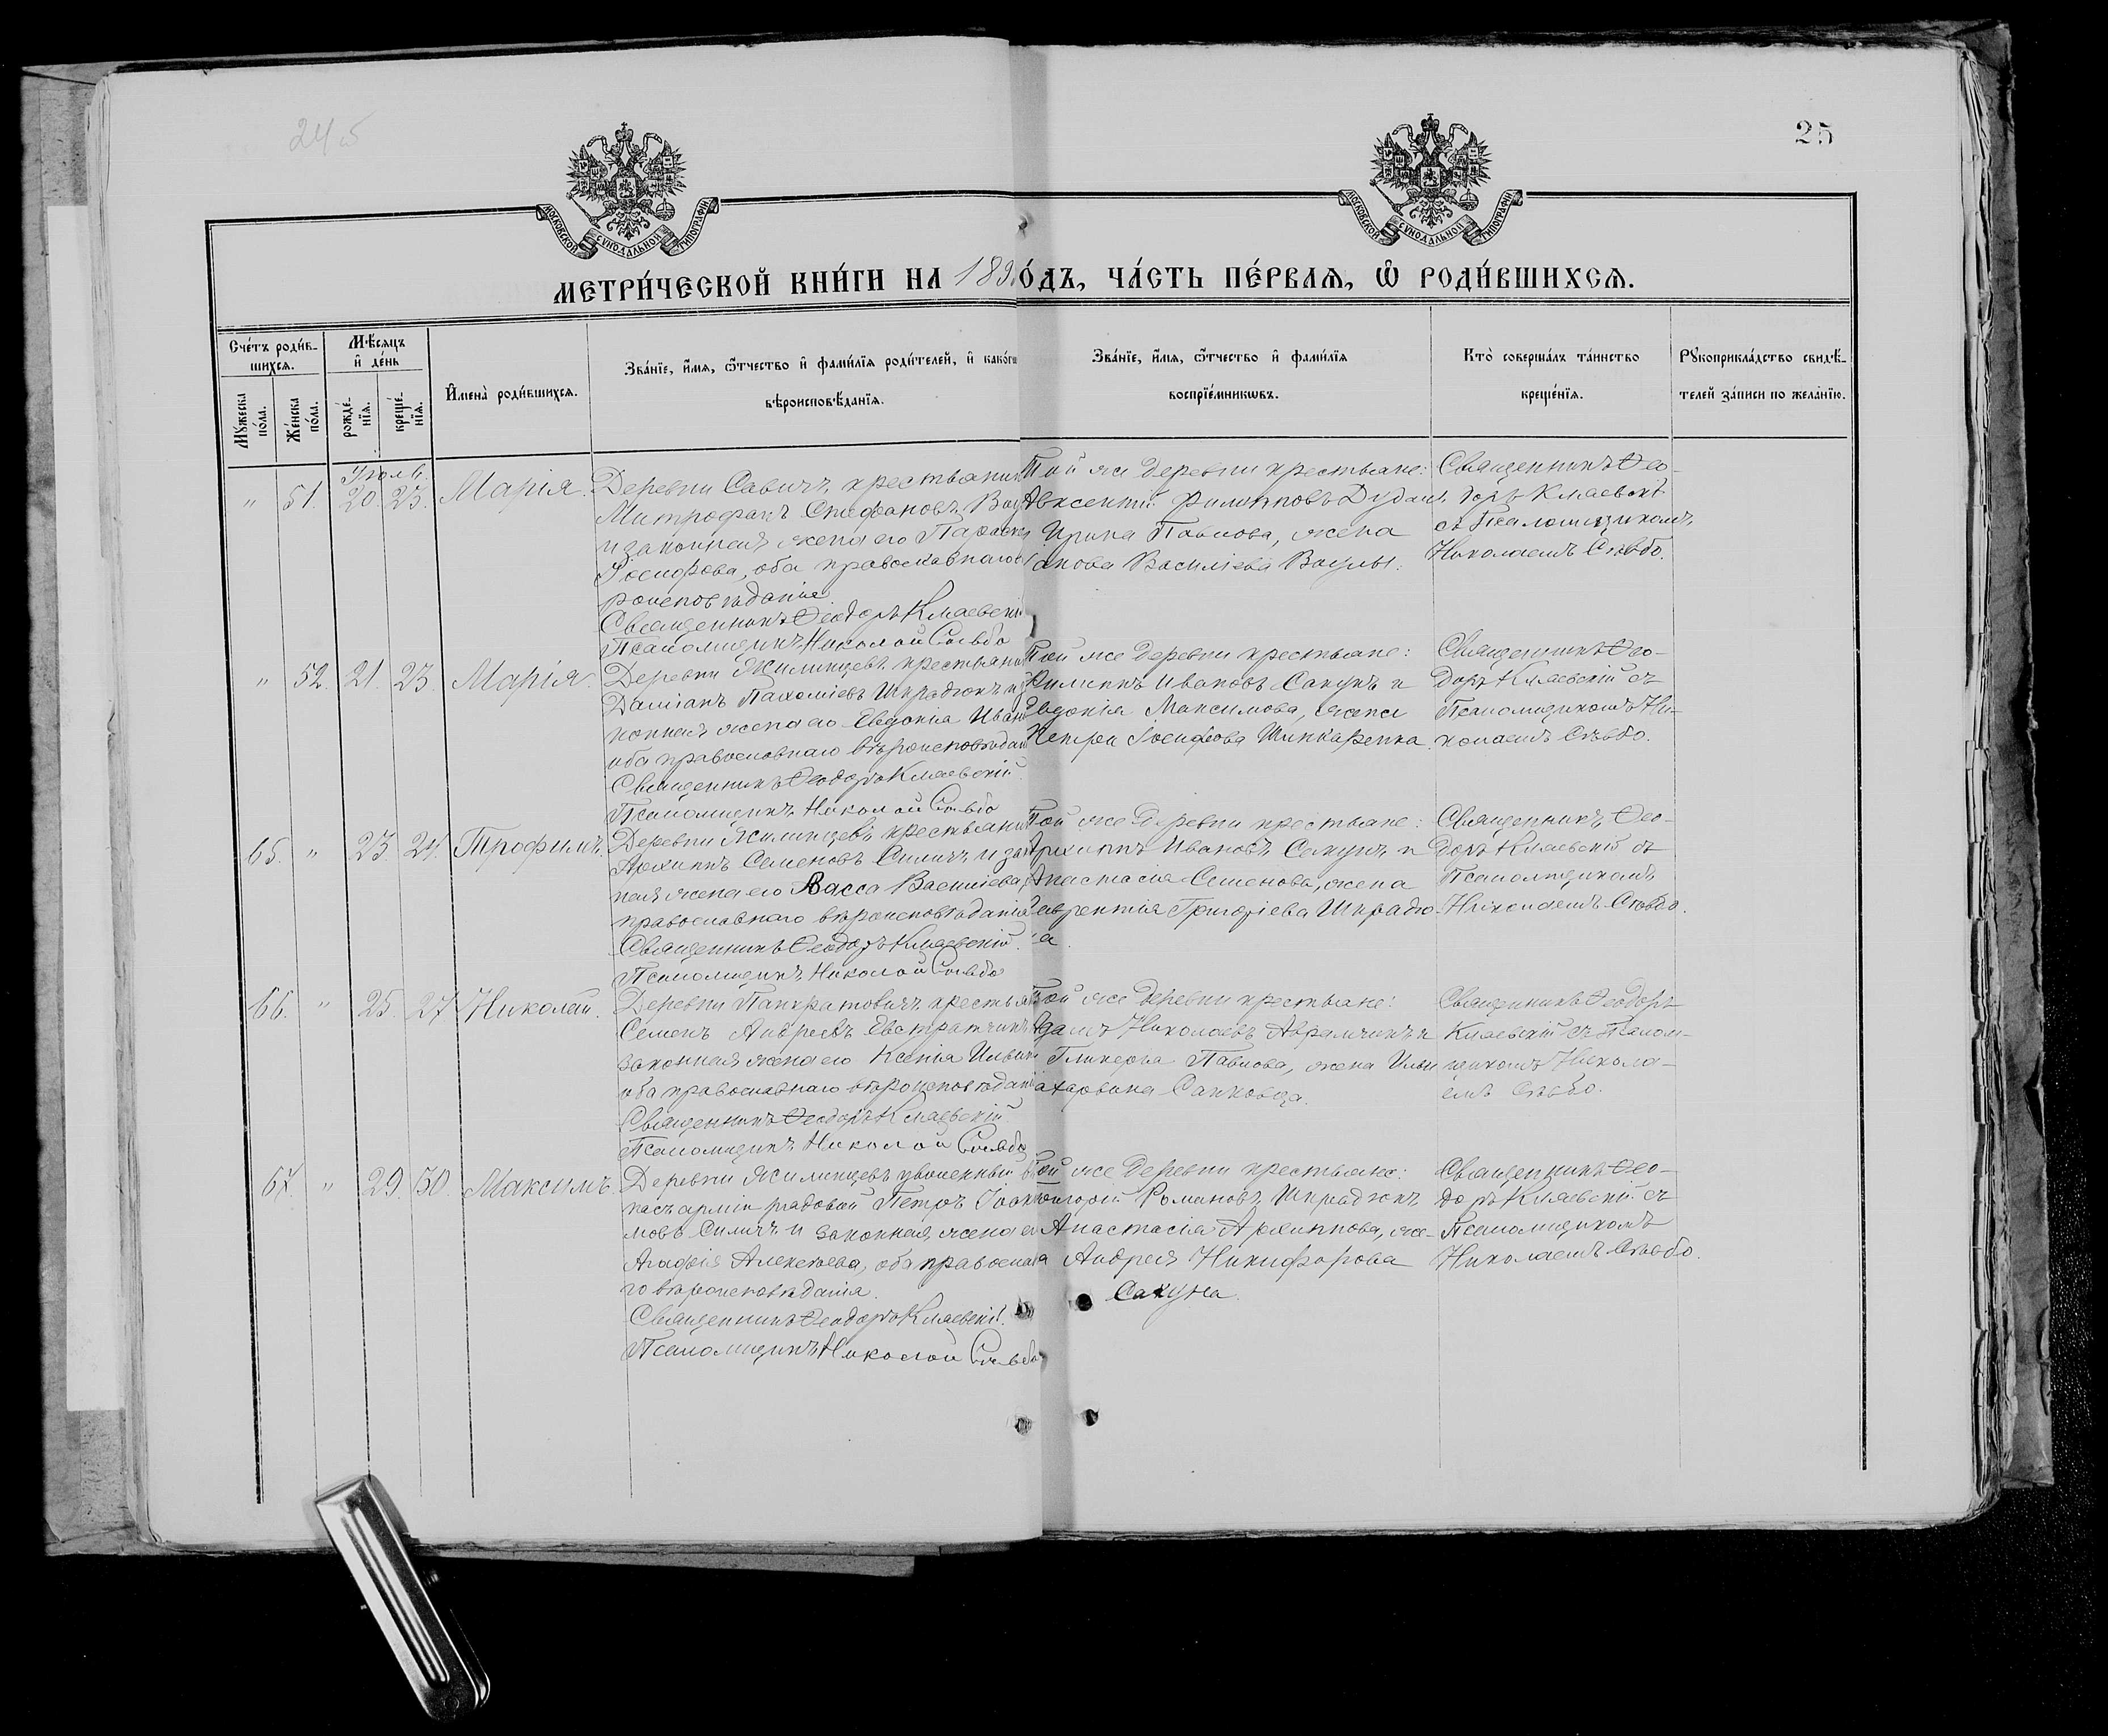 24 об
25
МОСКОВСКОЙ СУНОДАЛЬНОЙ ТИПОГРАФІИ
МОСКОВСКОЙ СУНОДАЛЬНОЙ ТИПОГРАФІИ
МЕТРИ́ЧЕСКОЙ КНИ́ГИ НА 189 О́ДЪ, ЧА́СТЬ ПЕ́РВАЯ, Ѡ҆ РОДИ́ВШИХСЯ.
Сче́тъ роди́в-
шихся.
Мѣ́сяцъ
и҆ де́нь
Му́жеска
по́ла.
Же́нска
по́ла.
рожде́-
нія.
креще́-
нія.
И҆мена̀ роди́вшихся.
Зва́нїе, и҆́мя, ѻ҆́тчество и҆ фами́лїя роди́телей, и҆ како́гѡ
вѣроисповѣ́данїя.
Зва́нїе, и҆́мя, ѻ҆́тчество и҆ фами́лїя
воспрїе́мникѡвъ.
Кто̀ соверша́лъ та́инство
креще́нїя.
Рꙋкоприкла́дство свидѣ́-
телей за́писи по жела́нїю.
Іюль
" 51. 20. 23. Марія.
Деревни Савичъ крестьянин
Митрофанъ Стефановъ
и законная жена его Параске
Іосифова, оба православнаго
роисповѣданія
Священникъ Ѳеодоръ Клаевскій
Псаломщикъ Николай
Той же деревни крестьяне:
Авксентій Филипповъ
Ирина Павлова, жена
Василіева
Священникъ Ѳео-
доръ Клаевскій
съ Псаломщикомъ
Николаемъ
" 52. 21. 23. Марія.
Деревни Жилинцевъ крестьянин
Даміанъ Пахоміевъ Шкрадюкъ и
конная жена его Евдокія Иван
оба православнаго вѣроисповѣдан
Священникъ Ѳеодоръ Клаевскій
Псаломщикъ Николай
Той же деревни крестьяне:
Филиппъ Ивановъ Сакунъ и
Евдокія Максимова, жена
Петра Іосифова Шинкаренка.
Священникъ Ѳео-
доръ Клаевскій съ
Псаломщикомъ Ни-
колаемъ
65. " 23. 24. Трофимъ.
Деревни Жилинцевъ крестьянин
Архиппъ Семеновъ Силичъ и зак
ная жена его Васса Василіева,
православнаго вѣроисповѣданія
Священникъ Ѳеодоръ Клаевскій
Псаломщикъ Николай
Той же деревни крестьяне:
Архиппъ Ивановъ Сакунъ и
Анастасія Семенова, жена
Лаврентія Григоріева Шкрадю-
ка.
Священникъ Ѳео-
доръ Клаевскій съ
Псаломщикомъ
Николаемъ
66. " 25. 27 Николай.
Деревни Панкратовичъ крестьян
Семенъ Андреевъ Евстратчикъ
законная жена его Ксенія Ильин
оба православнаго вѣроисповѣдані
Священникъ Ѳеодоръ Клаевскій
Псаломщикъ Николай
Той же деревни крестьяне:
Адамъ Николаевъ Абрамчикъ и
Гликерія Павлова, жена Ильи
Санковца.
Священникъ Ѳеодоръ
Клаевскій съ Псалом-
щикомъ Никола-
емъ
67. " 29. 30. Максимъ.
Деревни Жилинцевъ уволенный въ
пасъ арміи рядовой Петръ
мовъ Силичъ и законная жена ег
Агафія Алексѣева, оба православна
го вѣроисповѣданія.
Священникъ Ѳеодоръ Клаевскій.
Псаломщикъ Николай
Той же деревни крестьяне:
Григорій Романовъ Шкрадюкъ
Анастасія Архиппова, же-
на Андрея Никифорова
Сакуна.
Священникъ Ѳео-
доръ Клаевскій съ
Псаломщикомъ
Николаемъ